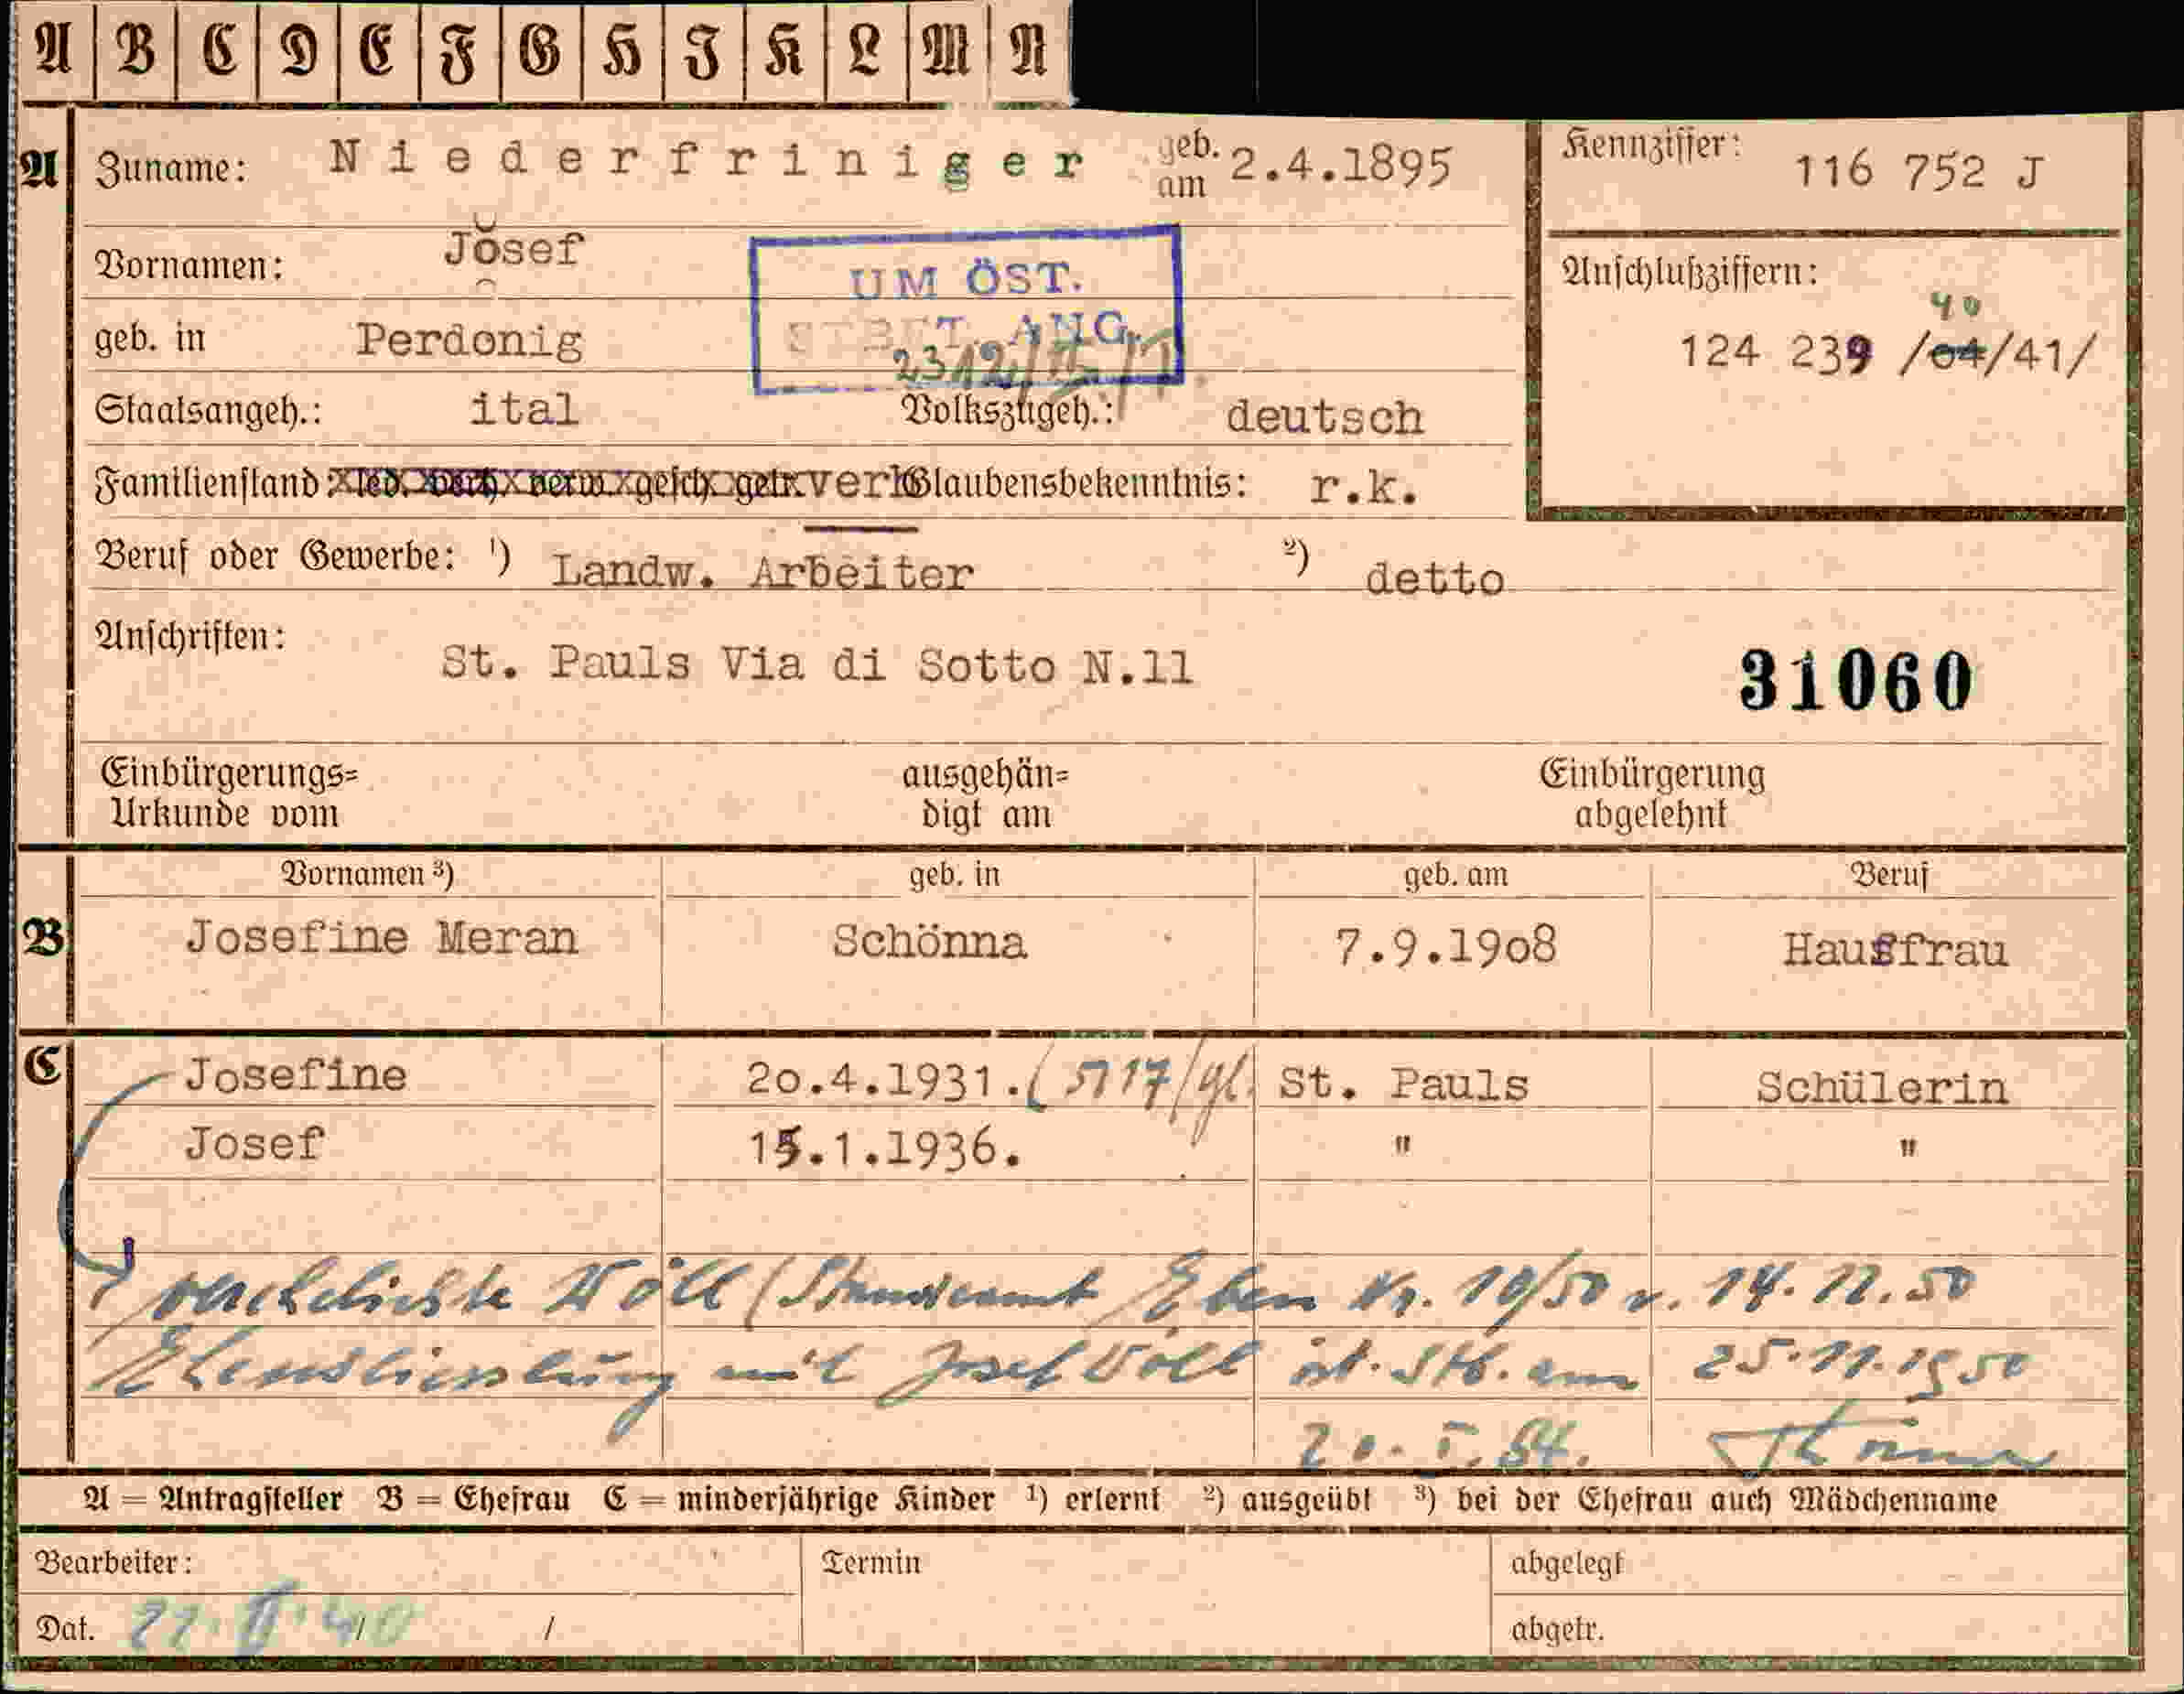 A B C D E F G H J K L M N
A Zuname: Niederfriniger geb. am 2.4.1895 Kennziffer: 116 752 J
Vornamen: Josef
UM ÖST.
STBGT. ANG.
Anschlußziffern:
40
geb. in Perdonig 124 239 /04/41/
Staatsangeh.: ital Volkszugeh.: deutsch
Familienstand: led. verh. verw. gesch. getr. verh Glaubensbekenntnis: r.k.
Beruf oder Gewerbe: 1) Landw. Arbeiter 2) detto
Anschriften: St. Pauls Via di Sotto N.11
31060
Einbürgerungs= ausgehän= Einbürgerung
Urkunde vom digt am abgelehnt
Vornamen 3) geb. in geb. am Beruf
B Josefine Meran Schönna 7.9.1908 Hausfrau
C Josefine 20.4.1931. (5117/gl. St. Pauls Schülerin
Josef 15.1.1936. " "
verehelichte Wöll (Standesamt Eben Nr. 10/50 v. 14.12.50
Eheschliessung mit Josef Wöll öst. Stb. am 25.11.1950
20.I.54.
A = Antragsteller B = Ehefrau C = minderjährige Kinder 1) erlernt 2) ausgeübt 3) bei der Ehefrau auch Mädchenname
Bearbeiter: Termin abgelegt
Dat. 22.II.40 / / abgetr.